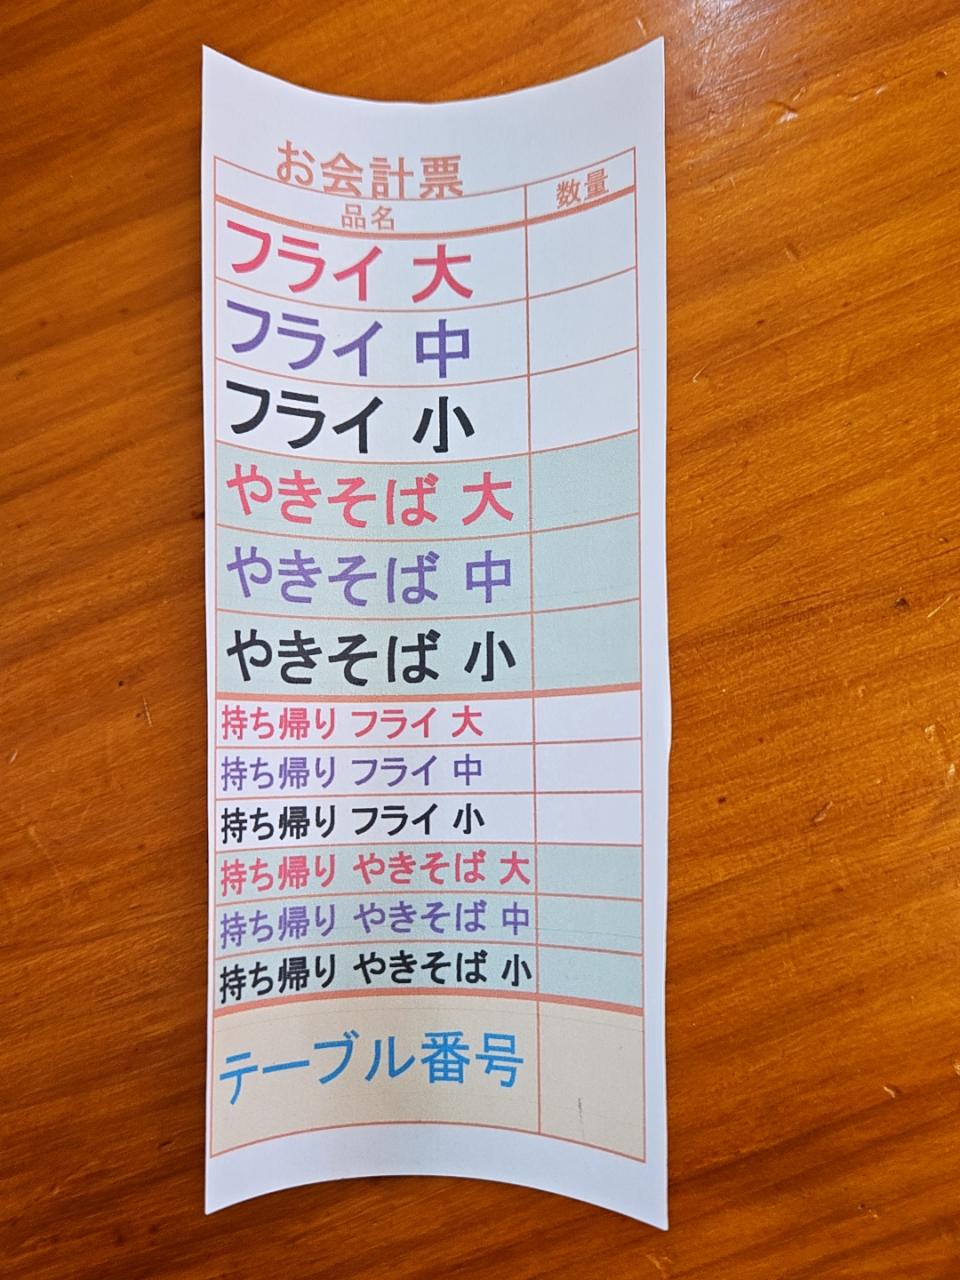 お会計票
品名 数量
フライ 大
フライ 中
フライ 小
やきそば 大
やきそば 中
やきそば 小
持ち帰り フライ 大
持ち帰り フライ 中
持ち帰り フライ 小
持ち帰り やきそば 大
持ち帰り やきそば 中
持ち帰り やきそば 小
テーブル番号